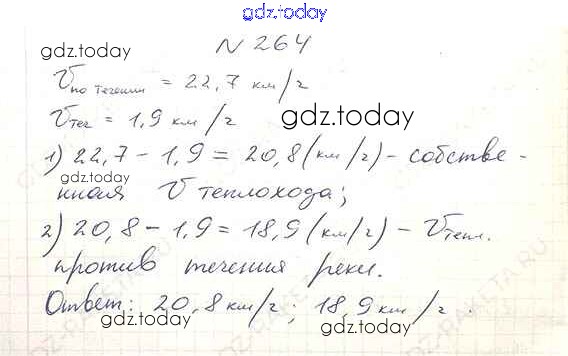 gdz.today
N 264
gdz.today
Vпо течении = 22,7 км/г
Vтег = 1,9 км/г
gdz.today
1) 22,7 - 1,9 = 20,8 (км/г) - собстве-
gdz.today
нная V теплохода;
2) 20,8 - 1,9 = 18,9 (км/г) - Vтепл.
против течения реки.
gdz.today
Ответ: 20,8 км/г; 18,9 км/г.
gdz.today
gdz.today
GDZ-RAKETA.RU